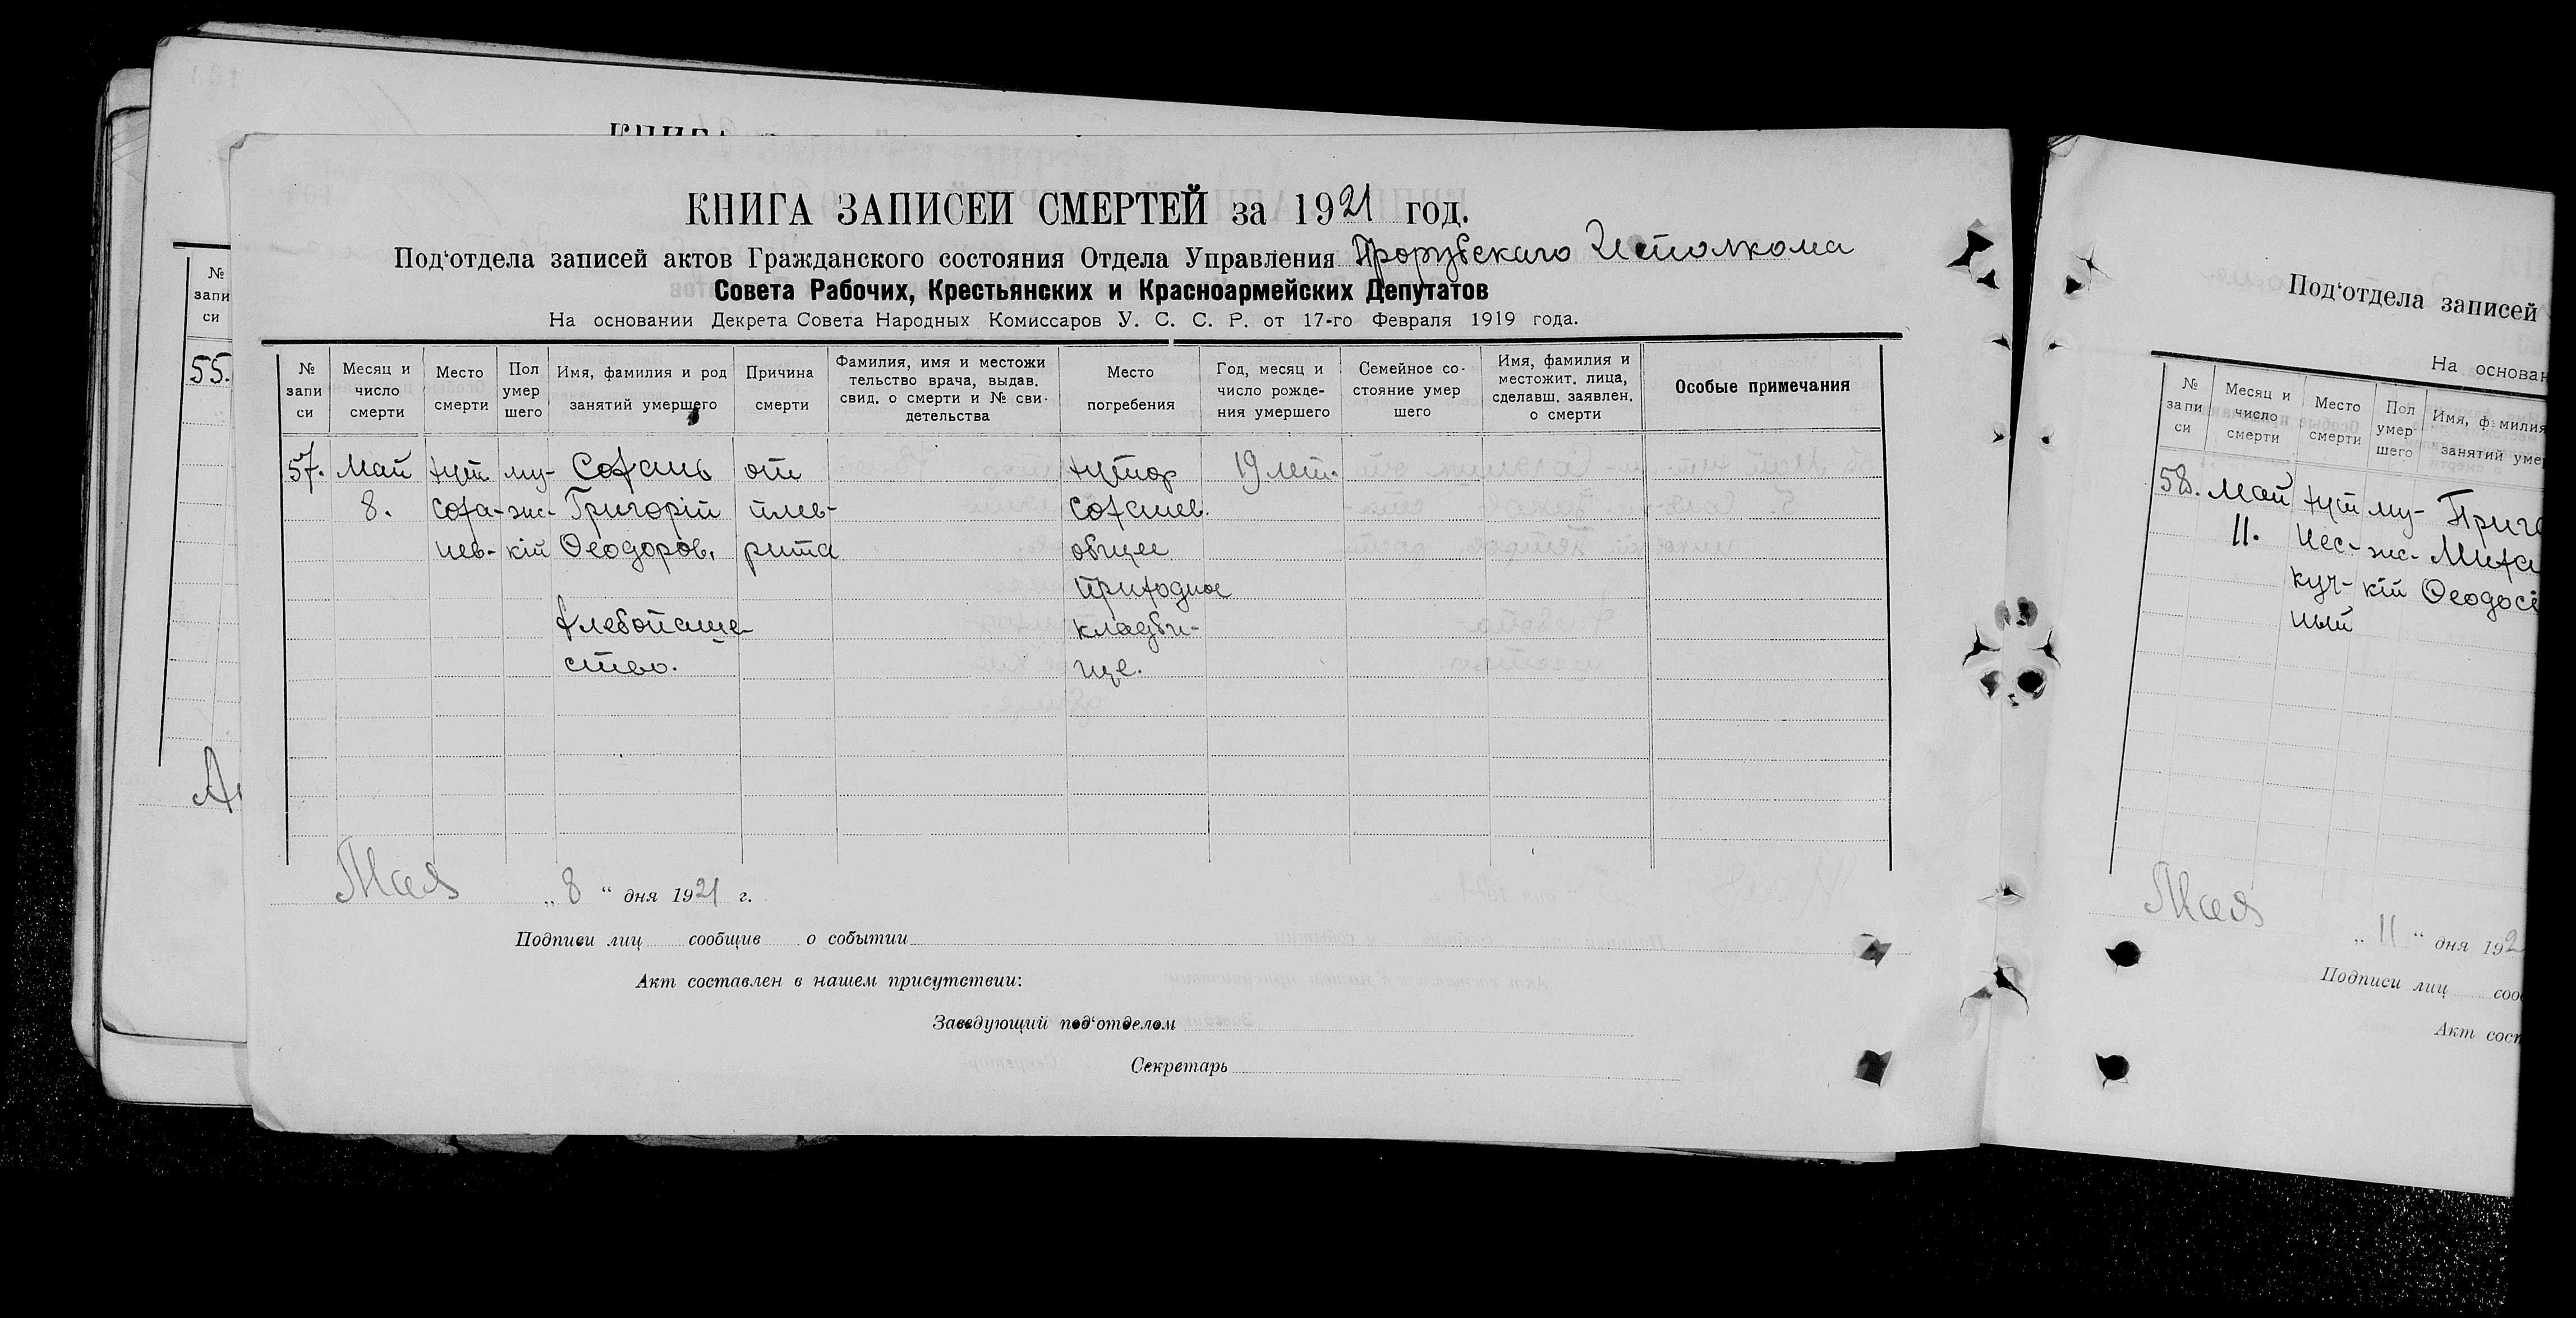 КНИГА ЗАПИСЕЙ СМЕРТЕЙ за 1921 год.
Под‘отдела записей актов Гражданского состояния Отдела Управления Прорубскаго Исполкома
Совета Рабочих, Крестьянских и Красноармейских Депутатов
На основании Декрета Совета Народных Комиссаров У. С. С. Р. от 17-го Февраля 1919 года.
№ запи си
Месяц и число смерти
Место смерти
Пол умер шего
Имя, фамилия и род занятий умершего
Причина смерти
Фамилия, имя и местожи тельство врача, выдав. свид. о смерти и № сви- детельства
Место погребения
Год, месяц и число рожде- ния умершего
Семейное со- стояние умер шего
Имя, фамилия и местожит. лица, сделавш. заявлен. о смерти
Особые примечания
57. Май хут. му- Сохань от хутор 19 лет.
8. Соха- жс- Григорій плев- Сохашев.
нев- кій Ѳеодоров, рита общее
приходное
хлебопаше- кладби-
ство. ще.
Мая „ 8 “ дня 1921 г.
Подписи лиц сообщив о событии
Акт составлен в нашем присутствии:
Заведующий под‘отделом
Секретарь
№ запи си
55.
Под‘отдела записей
На основан
№ запи си
Месяц и число смерти
Место смерти
Пол умер шего
Имя, фамилия занятий умер
58. Май хут му-
11. Нес- жс- Миха
куч- кій Ѳеодосі
ный
Мая
„ 11 “ дня 192
Подписи лиц соо
Акт сост